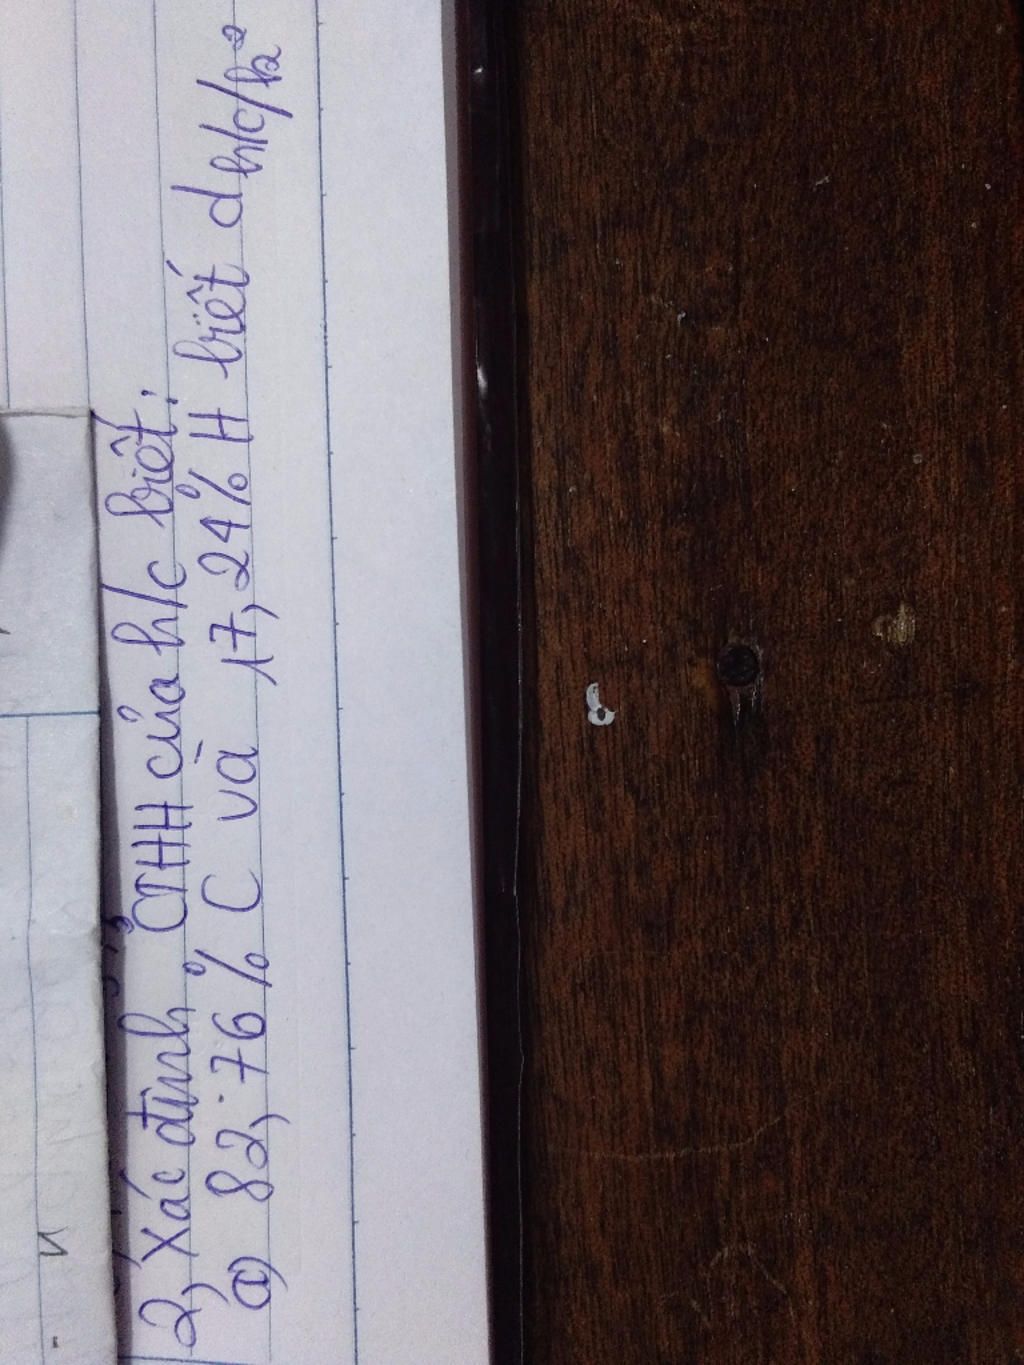 2, Xác định CTHH của h/c biết:
a) 82,76% C và 17,24% H biết d h/c/k²